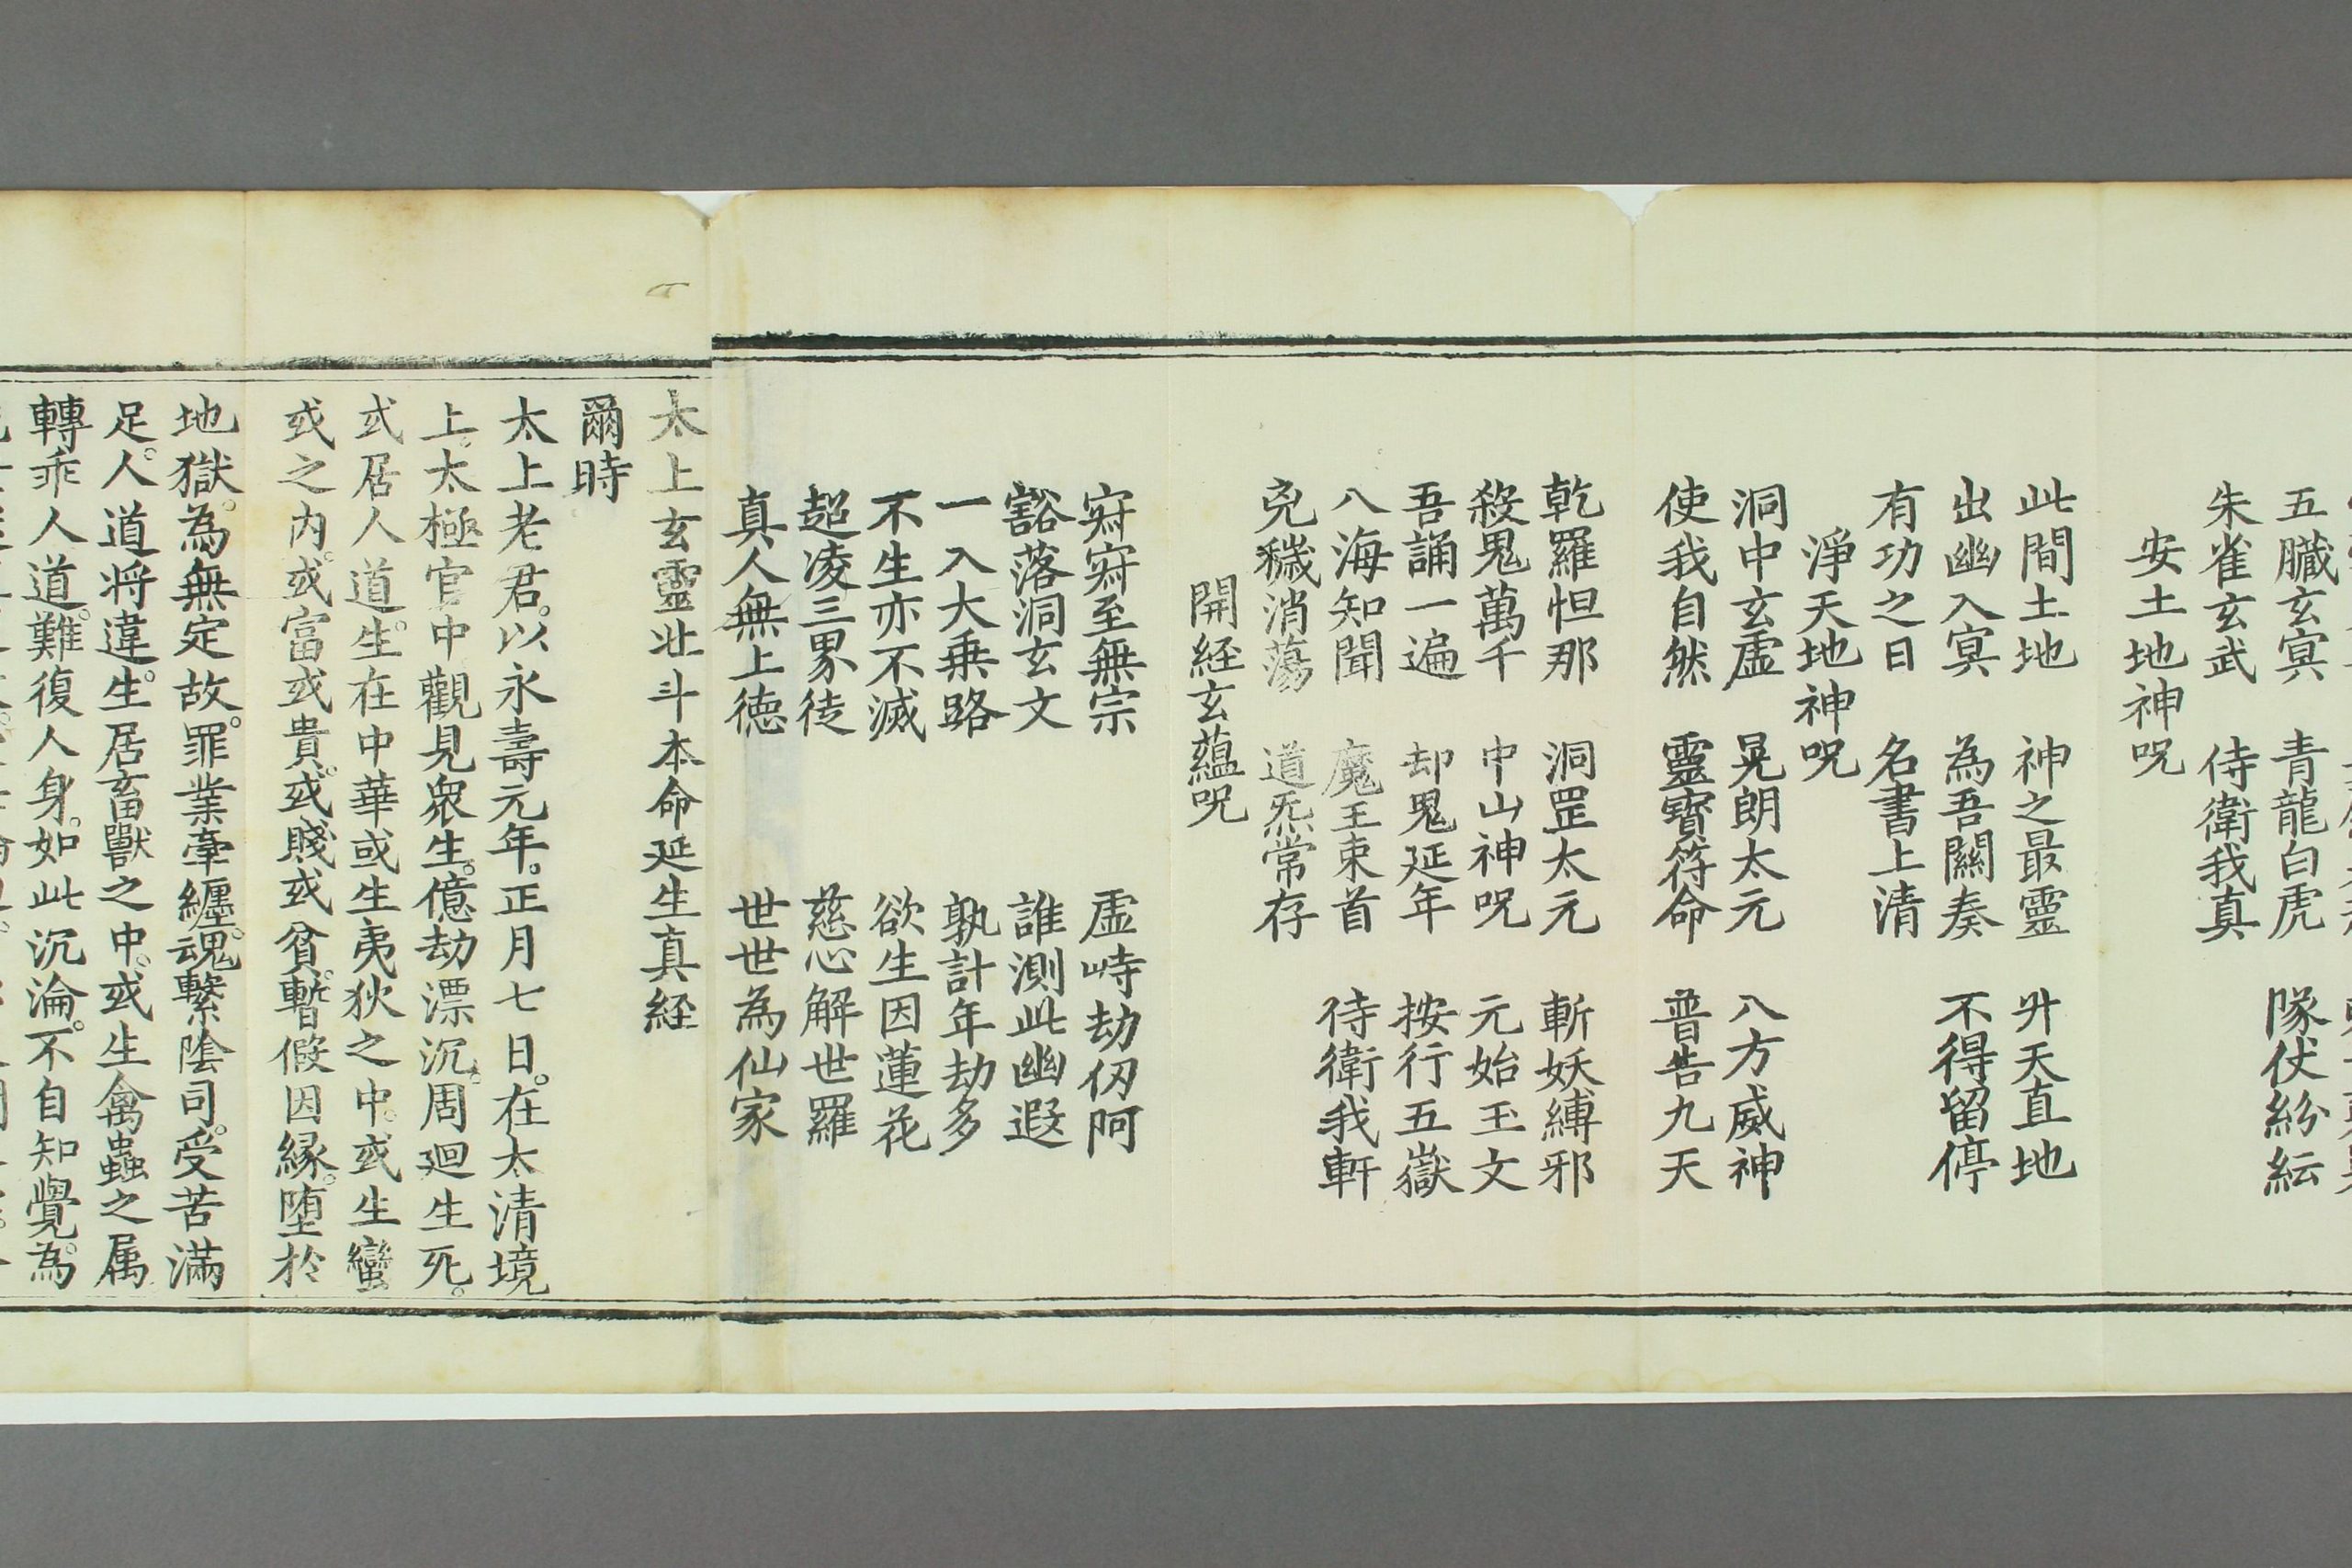 五臟玄冥 青龍白虎 隊仗紛紜
朱雀玄武 侍衛我真
安土地神呪
此間土地 神之最靈 升天直地
出幽入冥 為吾關奏 不得留停
有功之日 名書上清
淨天地神呪
洞中玄虛 晃朗太元 八方威神
使我自然 靈寶符命 普告九天
乾羅怛那 洞罡太元 斬妖縛邪
殺鬼萬千 中山神呪 元始玉文
吾誦一遍 却鬼延年 按行五嶽
八海知聞 魔王束首 侍衛我軒
兇穢消蕩 道炁常存
開経玄蘊呪
寂寂至無宗 虛峙劫仞阿
豁落洞玄文 誰測此幽遐
一入大乗路 孰計年劫多
不生亦不滅 欲生因蓮花
超凌三界徒 慈心解世羅
真人無上德 世世為仙家
太上玄靈北斗本命延生真経
爾時
太上老君。以永壽元年。正月七日。在太清境
上。太極宮中觀見衆生。億劫漂沉。周廻生死。
或居人道。生在中華或生夷狄之中。或生蠻
戎之內。或富或貴。或賤或貧。暫假因緣。墮於
地獄。為無定故。罪業牽纏。魂繫陰司。受苦滿
足。人道将違。生居畜獸之中。或生禽蟲之属
轉乖人道。難復人身。如此沉淪。不自知覺。為